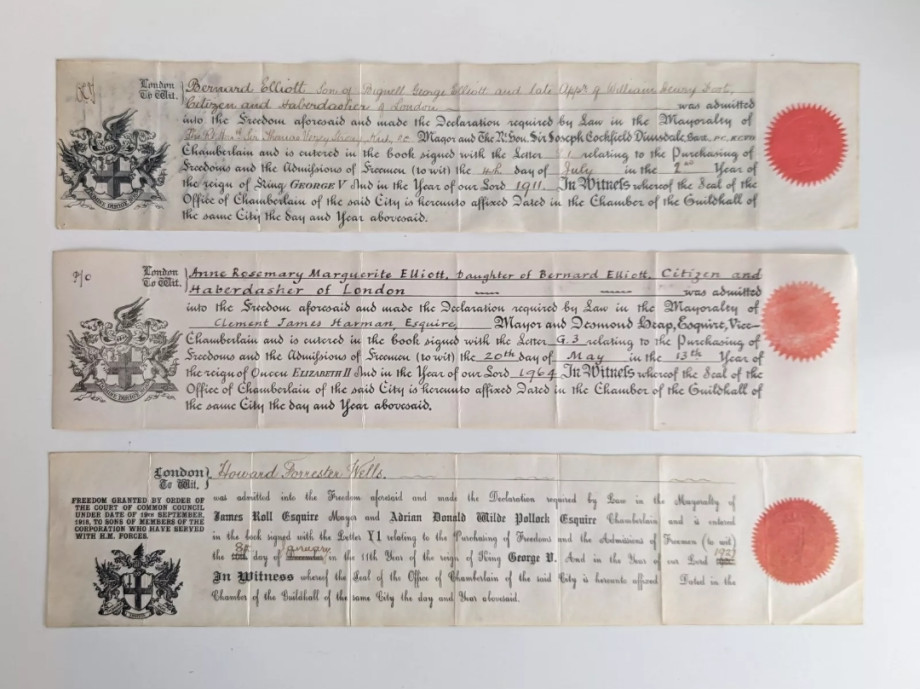 London
To Wit.
Bernard Elliott Son of Bignell George Elliott and late Appr of William Henry
Citizen and Haberdasher of London was admitted
into the Freedom aforesaid and made the Declaration required by Law in the Mayoralty of
The Rt Hon Sir Thomas Vezey Strong, Knt, P.C. Mayor and The Rt. Hon. Sir Joseph Cockfield Dimsdale, Bart. P.C. K.C.V.O.
Chamberlain and is entered in the book signed with the Letter relating to the Purchasing of
Freedoms and the Admissions of Freemen (to wit) the 4th day of July in the 2nd Year of
the reign of King GEORGE V And in the Year of our Lord 1911. In Witness whereof the Seal of the
Office of Chamberlain of the said City is hereunto affixed Dated in the Chamber of the Guildhall of
the same City the day and Year abovesaid.
DOMINE DIRIGE NOS
P/O
London
To Wit.
Anne Rosemary Marguerite Elliott, Daughter of Bernard Elliott, Citizen and
Haberdasher of London was admitted
into the Freedom aforesaid and made the Declaration required by Law in the Mayoralty of
Clement James Harman, Esquire, Mayor and Desmond Heap, Esquire, Vice-
Chamberlain and is entered in the book signed with the Letter G.3 relating to the Purchasing of
Freedoms and the Admissions of Freemen (to wit) the 20th day of May in the 13th Year of
the reign of Queen ELIZABETH II And in the Year of our Lord 1964 In Witness whereof the Seal of the
Office of Chamberlain of the said City is hereunto affixed Dated in the Chamber of the Guildhall of
the same City the day and Year abovesaid.
DOMINE DIRIGE NOS
London
To Wit.
Howard Forrester Wells.
FREEDOM GRANTED BY ORDER OF
THE COURT OF COMMON COUNCIL
UNDER DATE OF 19TH SEPTEMBER,
1918, TO SONS OF MEMBERS OF THE
CORPORATION WHO HAVE SERVED
WITH H.M. FORCES.
was admitted into the Freedom aforesaid and made the Declaration required by Law in the Mayoralty of
James Roll Esquire Mayor and Adrian Donald Wilde Pollock Esquire Chamberlain and is entered
in the book signed with the Letter Y1 relating to the Purchasing of Freedoms and the Admissions of Freemen (to wit)
the day of January in the 11th Year of the reign of King George V. And in the Year of our Lord 1921
In Witness whereof the Seal of the Office of Chamberlain of the said City is hereunto affixed Dated in the
Chamber of the Guildhall of the same City the day and Year abovesaid.